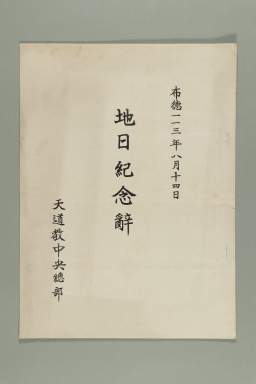 布德一一三年八月十四日
地日紀念辭
天道教中央總部